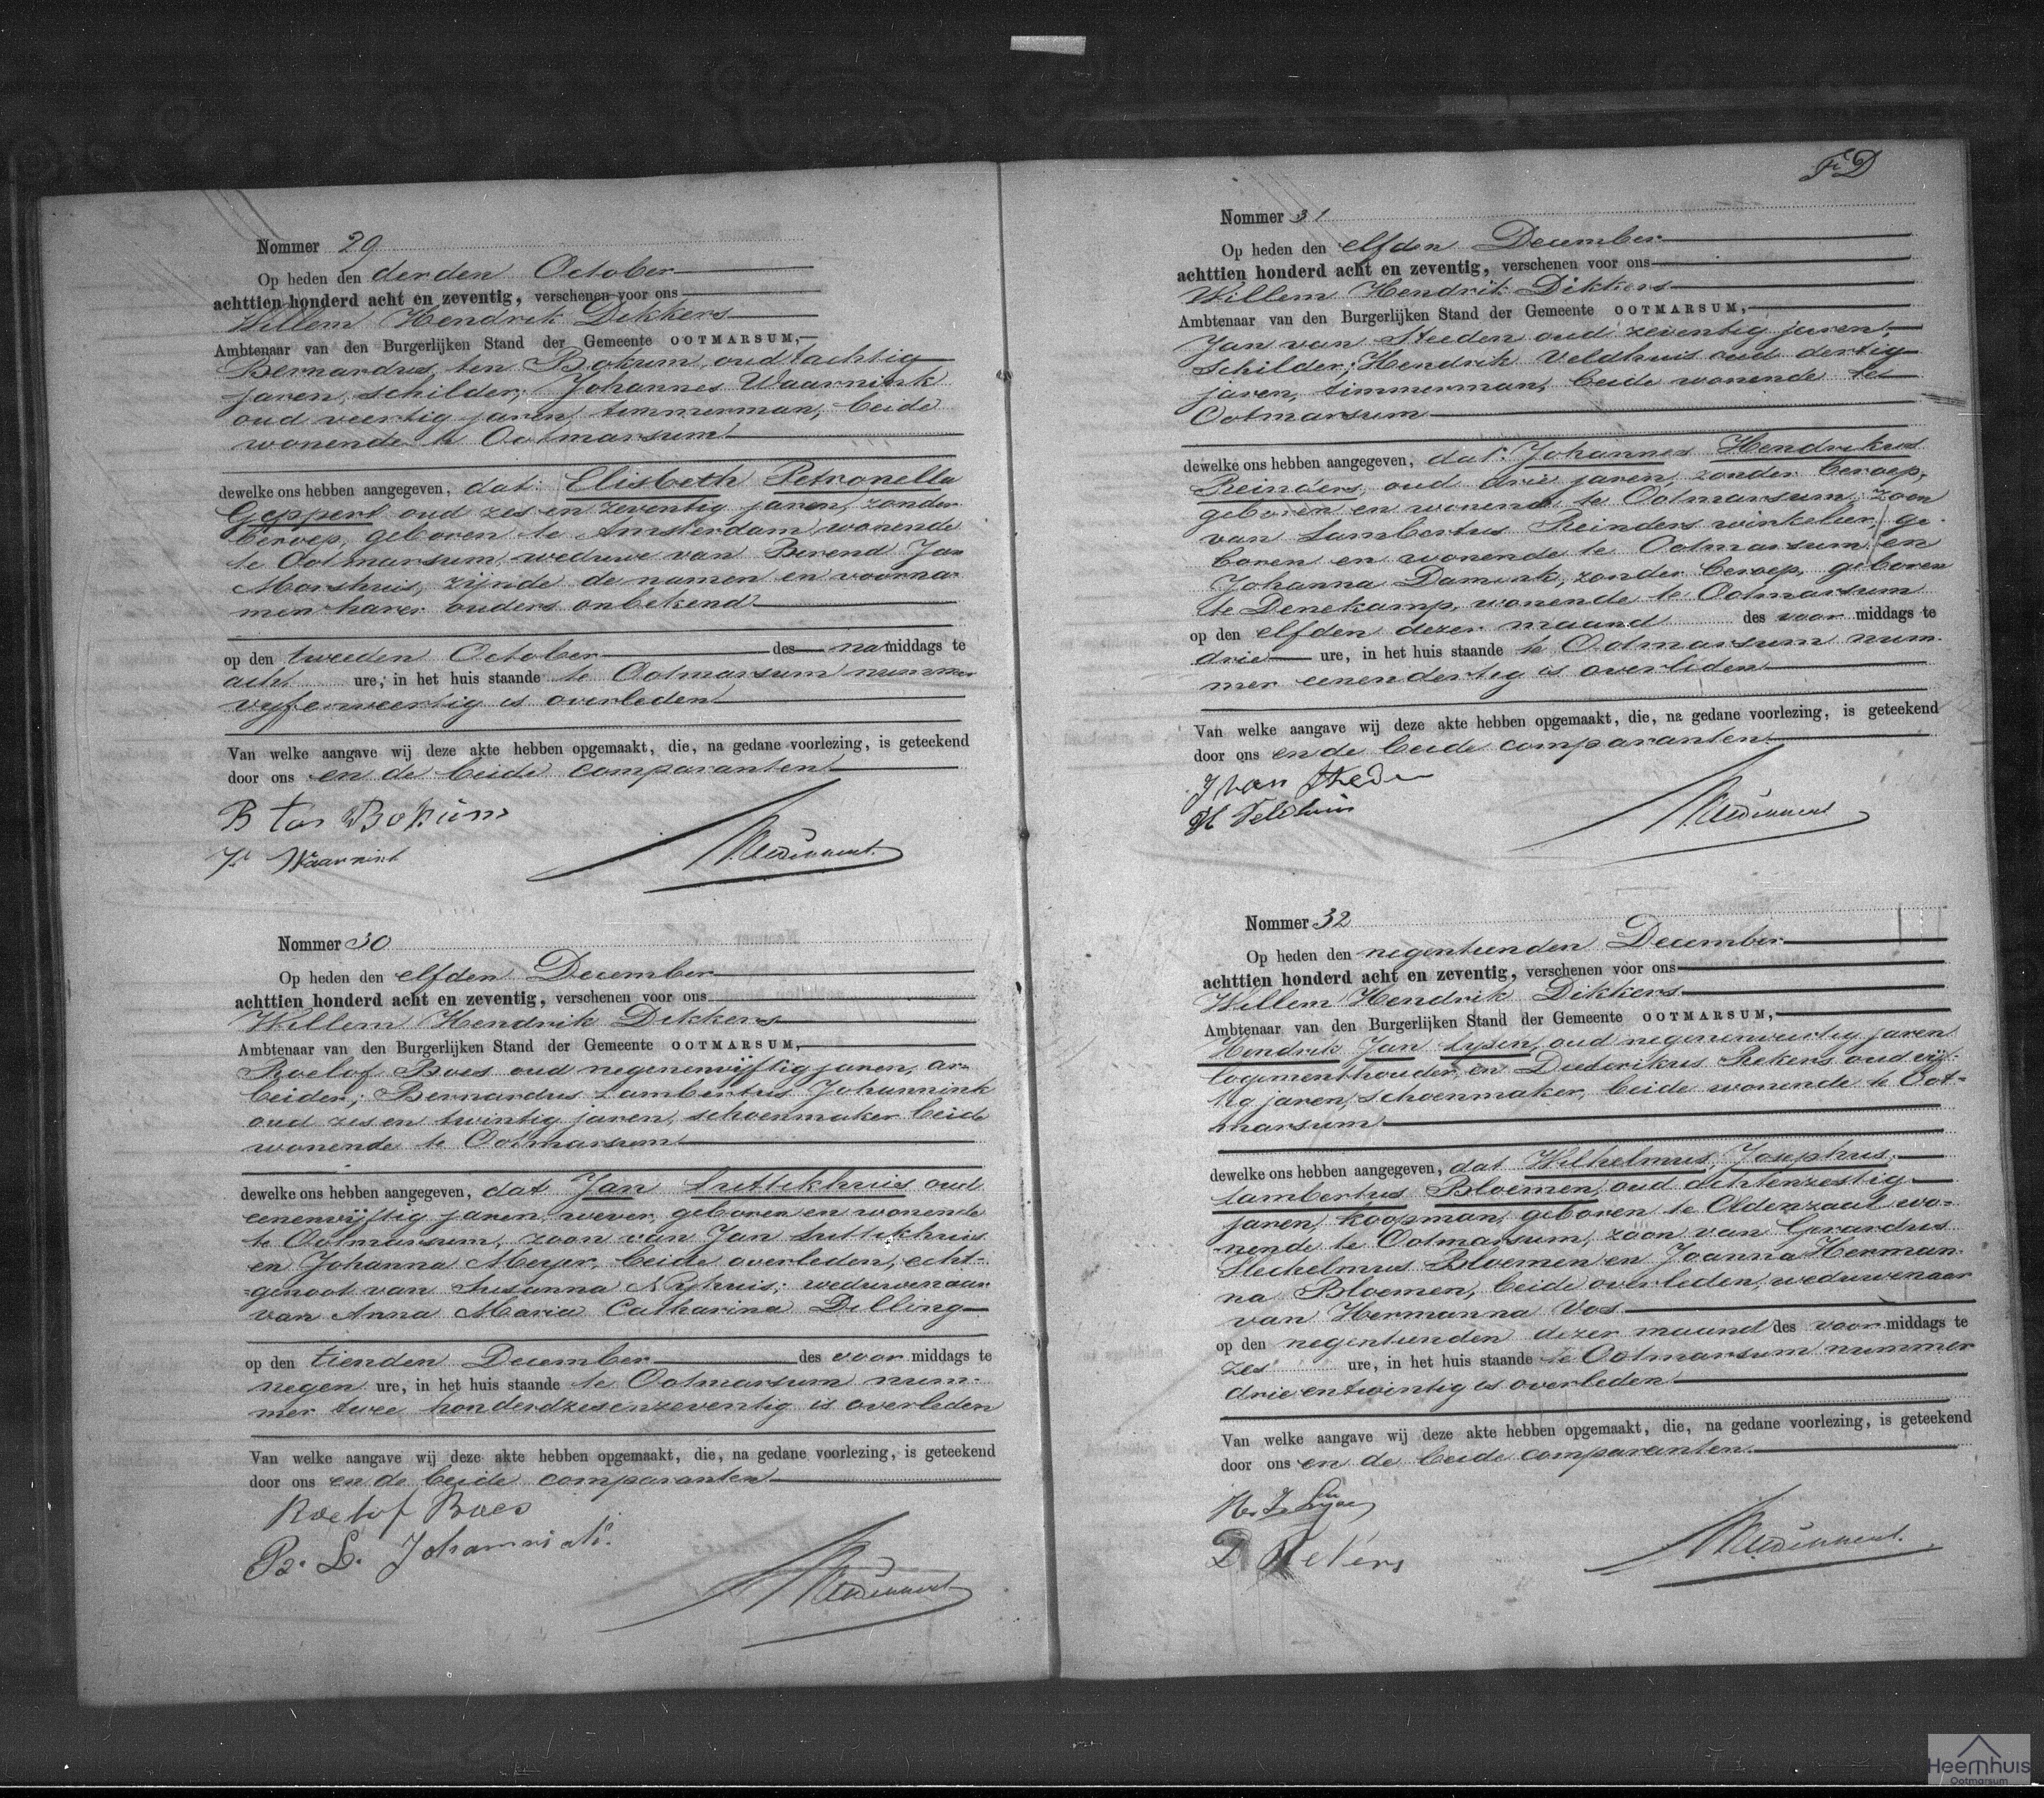 Nommer 29
Op heden den derden October
achttien honderd acht en zeventig, verschenen voor ons
Willem Hendrik Dikkers
Ambtenaar van den Burgerlijken Stand der Gemeente OOTMARSUM,
Bernardus ten Bokum, oud tachtig
jaren, schilder; Johannes Waarnink
oud veertig jaren, timmerman, beide
wonende te Ootmarsum
dewelke ons hebben aangegeven, dat: Elisbeth Petronella
Geppert oud zes en zeventig jaren, zonder
beroep, geboren te Amsterdam, wonende
te Ootmarsum, weduwe van Berend Jan
Morshuis, zijnde de namen en voorna-
men harer ouders onbekend
op den tweeden October des na middags te
acht ure, in het huis staande te Ootmarsum nummer
vyfenveertig is overleden
Van welke aangave wij deze akte hebben opgemaakt, die, na gedane voorlezing, is geteekend
door ons en de beide comparanten
B ten Bokum
Js Waarnink
Nommer 30
Op heden den elfden December
achttien honderd acht en zeventig, verschenen voor ons
Willem Hendrik Dikkers
Ambtenaar van den Burgerlijken Stand der Gemeente OOTMARSUM,
Roelof Boes oud negenenvijftig jaren, ar-
beider; Bernardus Lambertus Johannink
oud zes en twintig jaren, schoenmaker beide
wonende te Ootmarsum
dewelke ons hebben aangegeven, dat Jan Luttikhuis oud
eenenvijftig jaren, wever, geboren en wonende
te Ootmarsum, zoon van Jan Luttikhuis
en Johanna Meyer, beide overleden, echt-
genoot van Susanna Nijhuis; weduwenaar
van Anna Maria Catharina Delling
op den tienden December des voor middags te
negen ure, in het huis staande te Ootmarsum num-
mer twee honderdzesenzeventig is overleden
Van welke aangave wij deze akte hebben opgemaakt, die, na gedane voorlezing, is geteekend
door ons en de beide comparanten
Roelof Boes
B. L. Johannink
Nommer 31
Op heden den elfden December
achttien honderd acht en zeventig, verschenen voor ons
Willem Hendrik Dikkers
Ambtenaar van den Burgerlijken Stand der Gemeente OOTMARSUM,
Jan van Steeden oud zeventig jaren,
Schilder; Hendrik Veldhuis oud dertig
jaren, timmerman, beide wonende te
Ootmarsum
dewelke ons hebben aangegeven, dat: Johannes Hendrikus
Reinders, oud drie jaren, zonder beroep,
geboren en wonende te Ootmarsum, zoon
van Lambertus Reinders winkelier, ge-
boren en wonende te Ootmarsum en
Johanna Damink, zonder beroep, geboren
te Denekamp, wonende te Ootmarsum
op den elfden dezer maand des voor middags te
drie ure, in het huis staande te Ootmarsum num-
mer eenendertig is overleden
Van welke aangave wij deze akte hebben opgemaakt, die, na gedane voorlezing, is geteekend
door ons en de beide comparanten
J van Steden
H Veldhuis
Nommer 32
Op heden den negentienden December
achttien honderd acht en zeventig, verschenen voor ons
Willem Hendrik Dikkers
Ambtenaar van den Burgerlijken Stand der Gemeente OOTMARSUM,
Hendrik Jan Lysen, oud negenenveertig jaren
logementhouder, en Diederikus Rekers oud vijf-
tig jaren, schoenmaker, beide wonende te Oot-
marsum
dewelke ons hebben aangegeven, dat Wilhelmus Josephus
Lambertus Bloemen, oud achtenzestig
jaren, koopman, geboren te Oldenzaal wo-
nende te Ootmarsum, zoon van Gerardus
Bloemen en Joanna Herman-
na Bloemen, beide overleden, weduwenaar
van Hermanna Vos
op den negentienden dezer maand des voor middags te
zes ure, in het huis staande te Ootmarsum nummer
drieentwintig is overleden
Van welke aangave wij deze akte hebben opgemaakt, die, na gedane voorlezing, is geteekend
door ons en de beide comparanten
D Rekers
Heemhuis
Ootmarsum